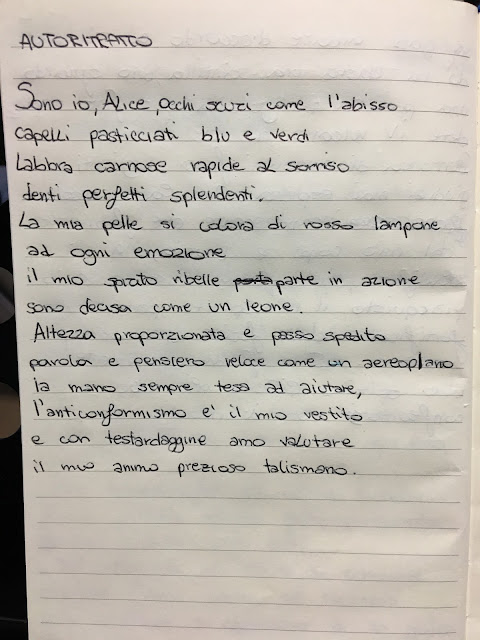 AUTORITRATTO
Sono io, Alice, occhi scuri come l'abisso
capelli pasticciati blu e verdi
Labbra carnose rapide al sorriso
denti perfetti splendenti.
La mia pelle si colora di rosso lampone
ad ogni emozione
il mio spirito ribelle parte in azione
sono decisa come un leone.
Altezza proporzionata e passo spedito
parola e pensiero veloce come un aereoplano
la mano sempre tesa ad aiutare,
l'anticonformismo e' il mio vestito
e con testardaggine amo valutare
il mio animo prezioso talismano.